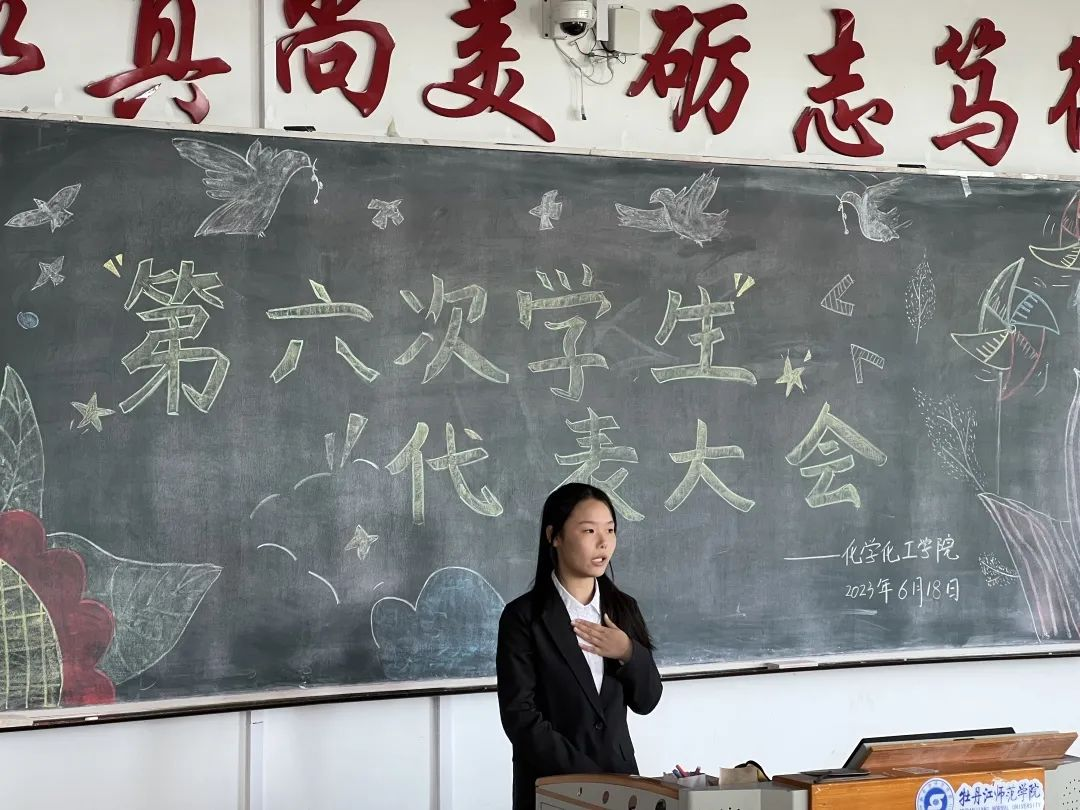 真尚美砺志笃
第六次学生
代表大会
——化学化工学院
2023年6月18日
牡丹江师范学院
MUDANJIANG NORMAL UNIVERSITY